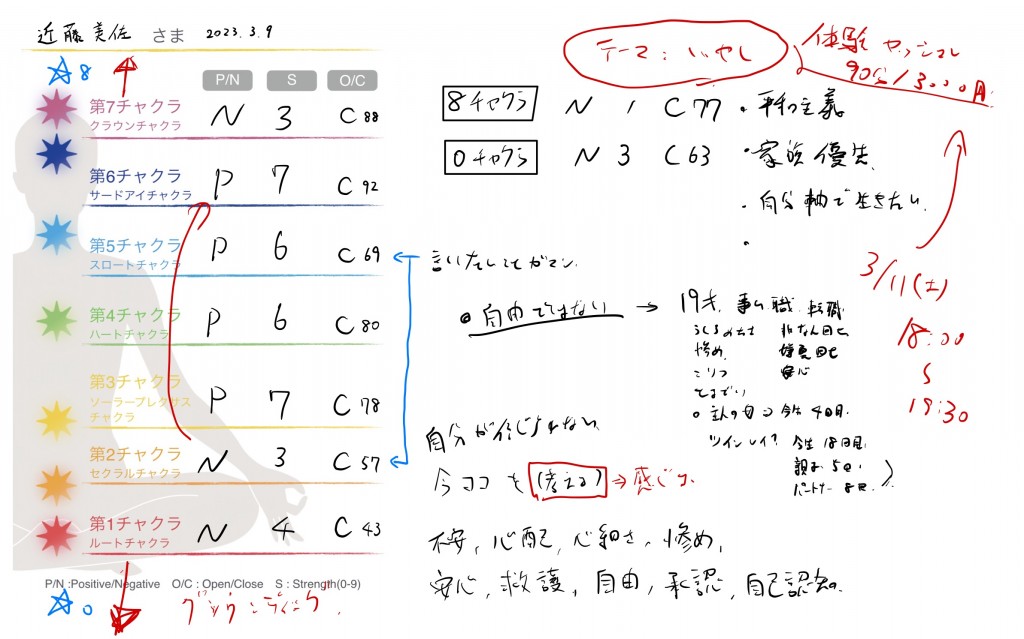 近藤美佐 さま 2023.3.9
☆8
P/N S O/C
第7チャクラ
クラウンチャクラ
N 3 C 88
第6チャクラ
サードアイチャクラ
P 7 C 92
第5チャクラ
スロートチャクラ
P 6 C 69
第4チャクラ
ハートチャクラ
P 6 C 80
第3チャクラ
ソーラープレクサス
チャクラ
P 7 C 78
第2チャクラ
セクラルチャクラ
N 3 C 57
第1チャクラ
ルートチャクラ
N 4 C 43
P/N :Positive/Negative O/C : Open/Close S : Strength(0-9)
☆0
グラウンディング
テーマ:いやし
体験セッション
90分/3000円
8チャクラ N 1 C77 ・平和主義
0チャクラ N 3 C63 ・家族優先
・自分軸で生きたい
3/11(土)
18:00
19:30
自由ではない → 19才
転職
惨め
安心
今生18回目
親子5回
パートナー8回
自分が信じられない
今ココを(考える)⇒感じる
不安、心配、心細さ、惨め、
安心、救護、自由、承認、自己認知